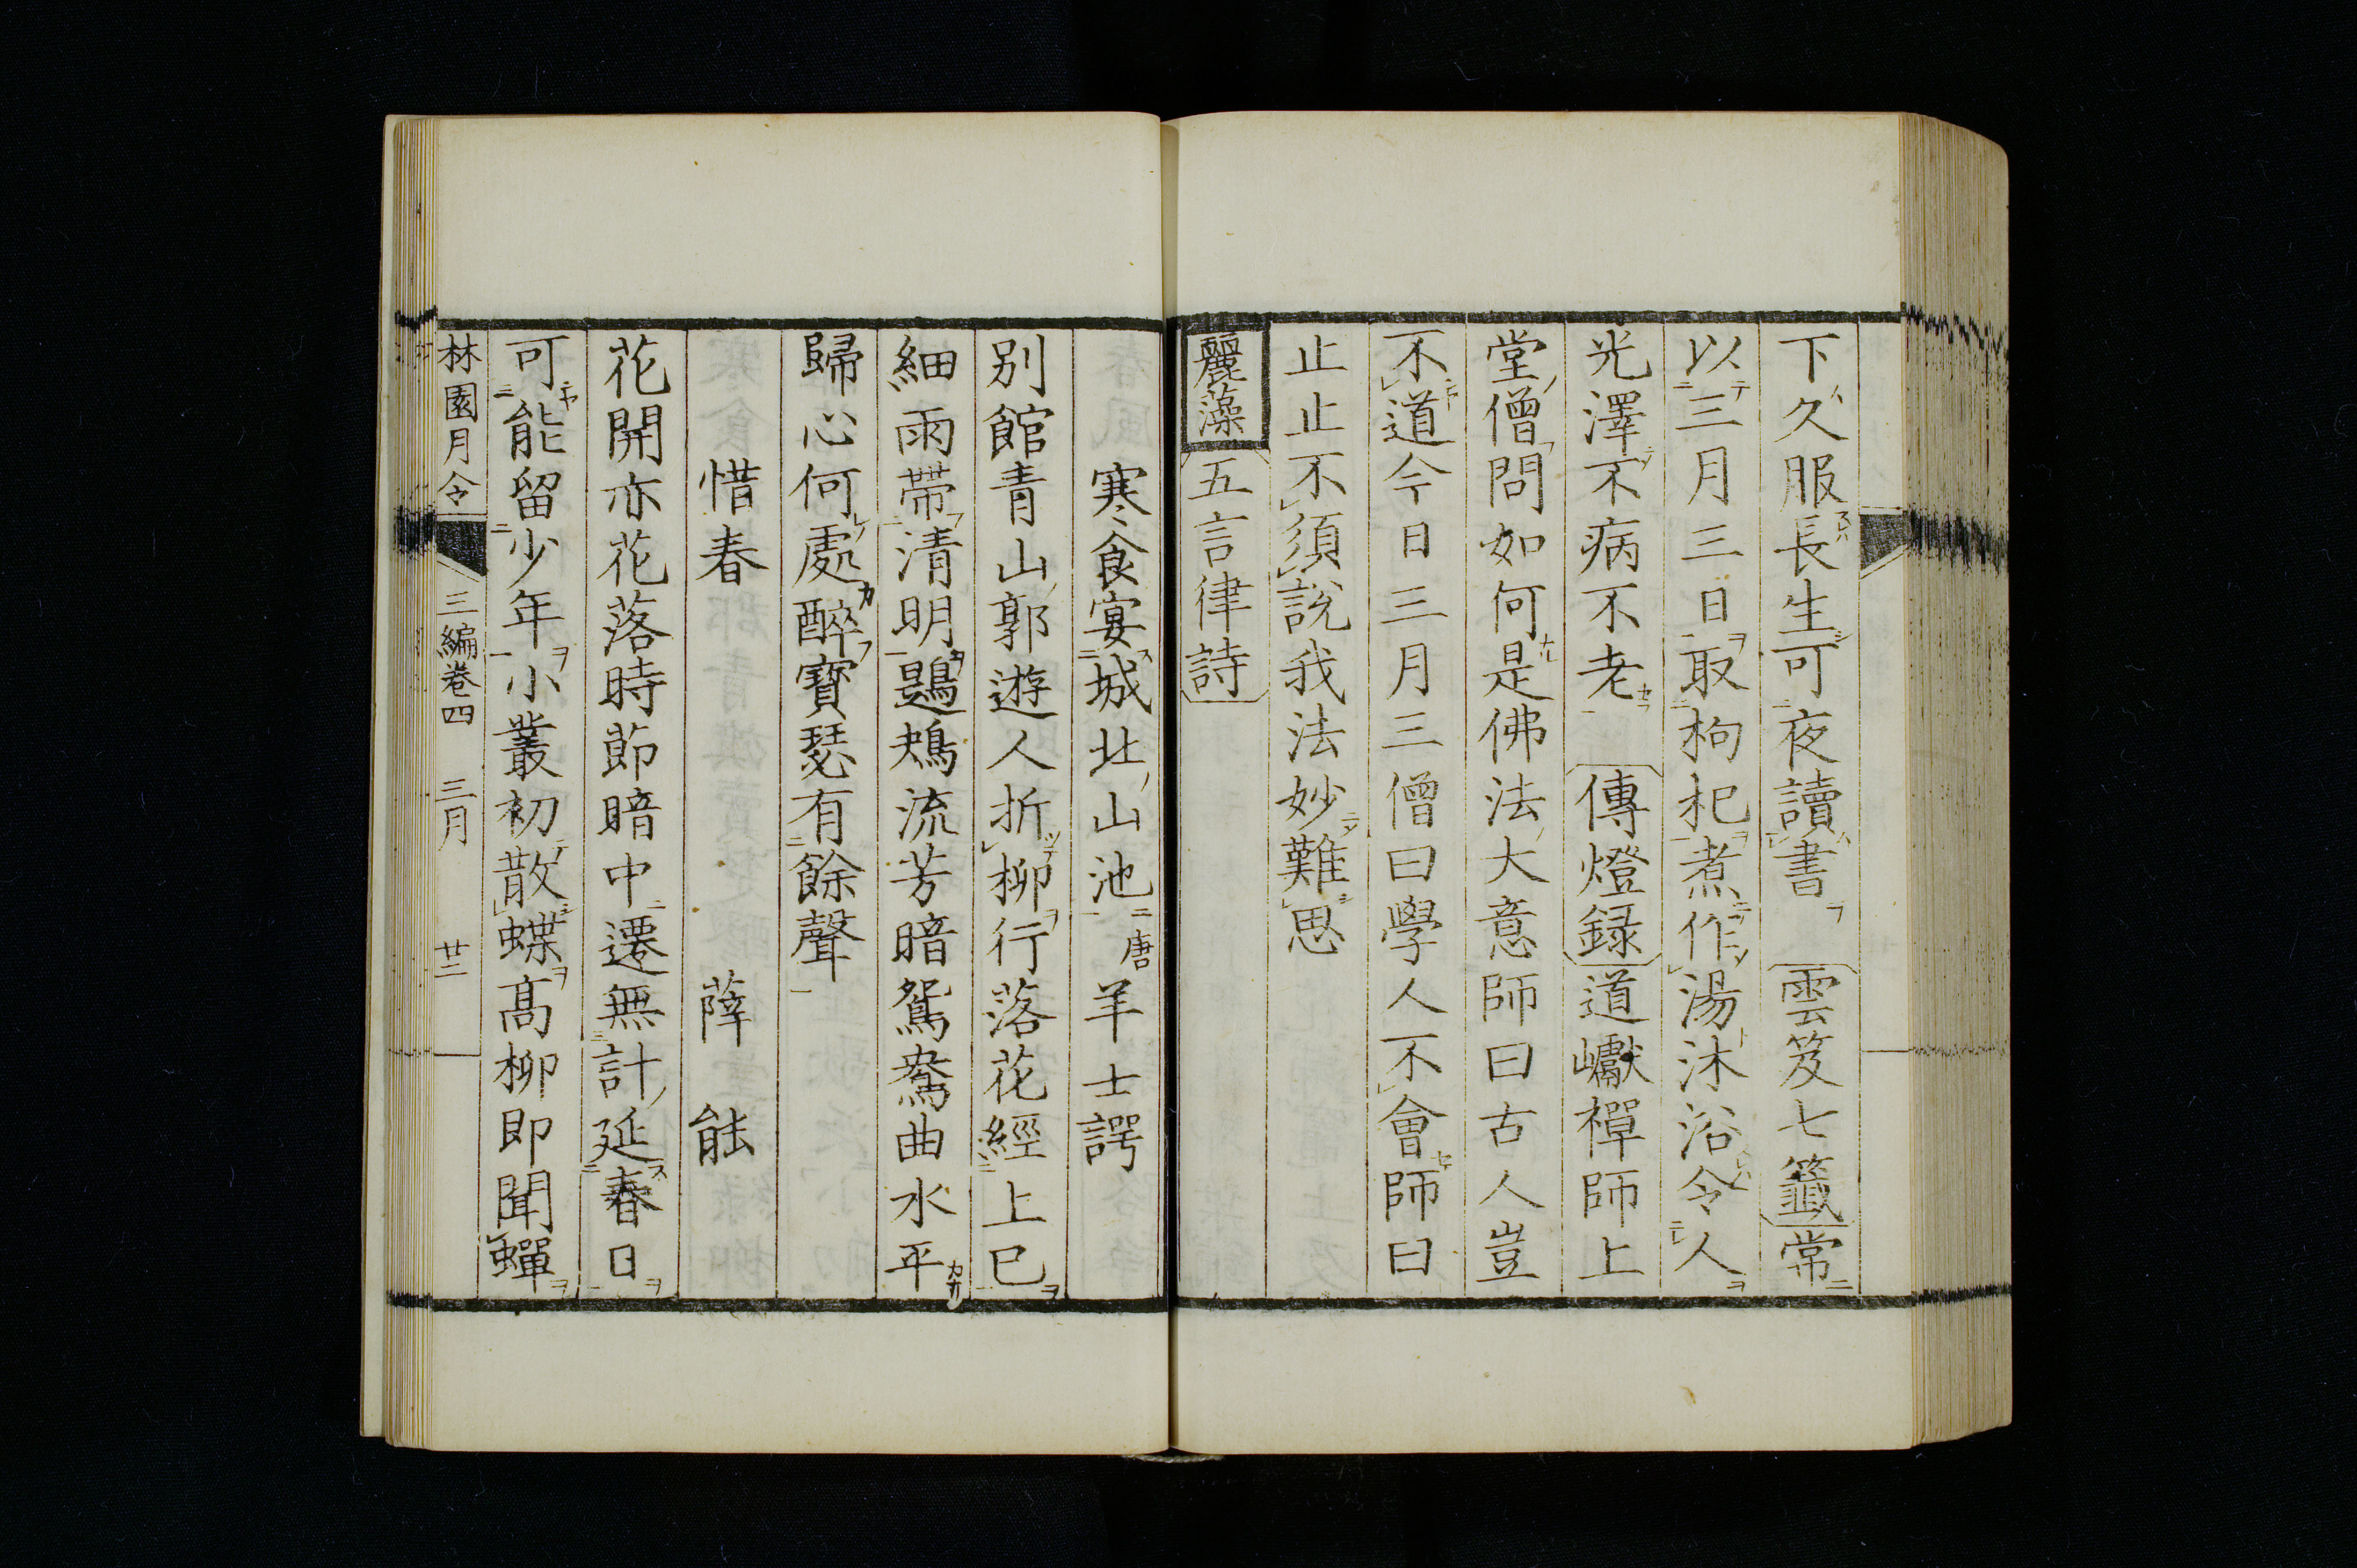 下久服長生可夜讀書 雲笈七籤常
以三月三日取枸杞煮作湯沐浴令人
光澤不病不老 傳燈録道巘禪師上
堂僧問如何是佛法大意師曰古人豈
不道今日三月三僧曰學人不會師曰
止止不須説我法妙難思
麗藻 五言律詩
寒食宴城北山池 唐 羊士諤
別館青山郭遊人折柳行落花經上巳
細雨帶清明鶗鴂流芳暗鴛鴦曲水平
歸心何處醉寶瑟有餘聲
惜春 薛能
花開亦花落時節暗中遷無計延春日
可能留少年小叢初散蝶高柳即聞蟬
林園月令 三編卷四 三月 廿二